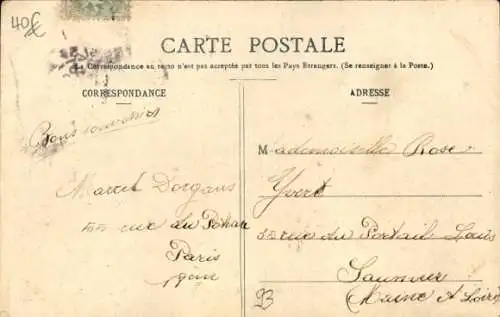 40€
CARTE POSTALE
La Correspondance au recto n'est pas acceptée par tous les Pays Etrangers. (Se renseigner à la Poste.)
CORRESPONDANCE
Bons souvenirs
Marcel Dorgans
rue du
Paris
ADRESSE
Mademoiselle Rose
Yvert
rue du Portail Louis
Saumur
(Maine & Loire)